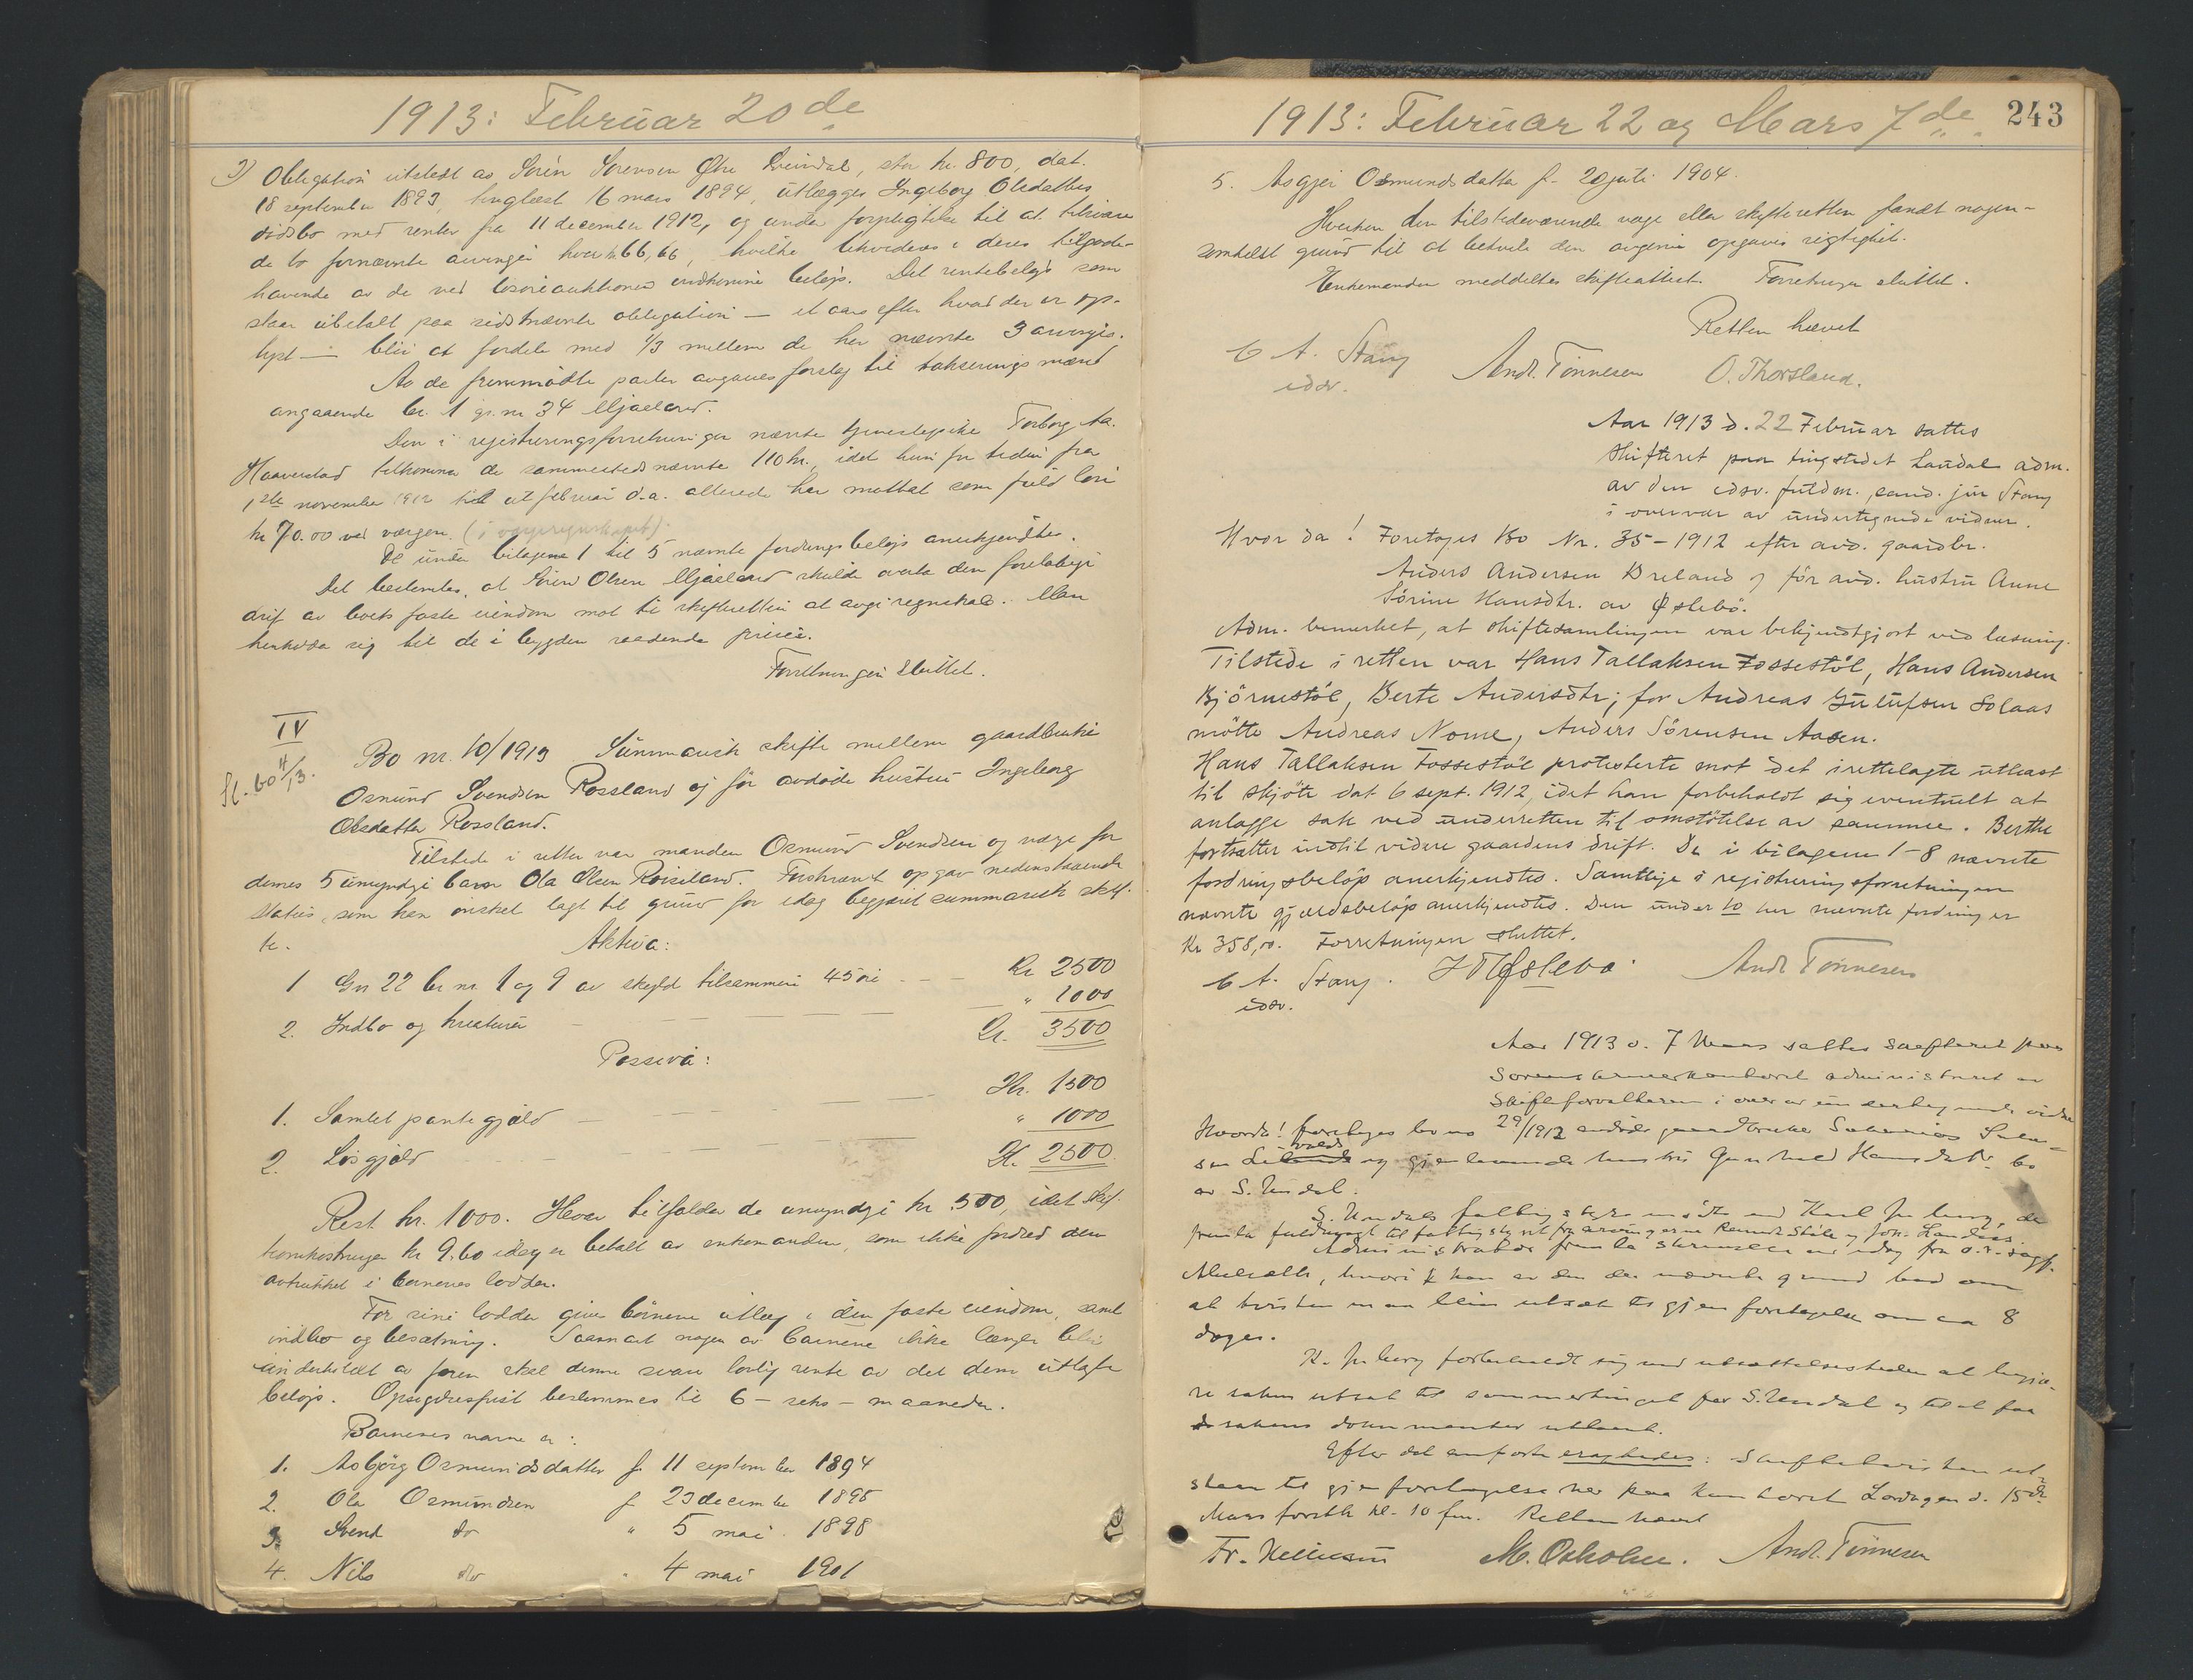 1913: Februar 20de
3) Obligation utstedt av Sören Sörensen Øvre Øeindal, stor kr. 800, dat.
18 september 1893, tinglæst 16 mars 1894, utlægges Ingeborg Olsdatters
dödsbo med renter fra 11 december 1912, og under forpligtelse til at tilsvare
de to fornævnte arvinger hver kr. 66,66, hvilke likvideres i deres tilgode-
havende av de ved lösöreauktionen indkomne belöp. Det rentebelöp som
staar ubetalt paa sidstnævnte obligation — et aar efter hvad der er op-
lyst — blir at fordele med 1/3 mellem de her nævnte 3 arvinger.
Av de fremmödte parter avgaves forslag til takseringsmænd
angaaende br. 1 gr. nr 34 Mjaaland.
Den i registreringsforretningen nævnte tjenestepike Torborg Aa.
Haaverstad tilkommer de sammesteds nævnte 110 kr., idet hun for tiden fra
1ste november 1912 til ut februar d.a. allerede har mottat som fuld lön
kr 70.00 ved værgen. (i værgeregnskapet).
De under bilagene 1 til 5 nævnte fordringsbelöp anerkjendtes.
Det bestemtes, at Sören Olsen Mjaaland skulde overta den forelöbige
drift av boets faste eiendom mot til skifteretten at avgi regnskab. Man
henholder sig til de i bygden raadende priser.
Forretningen sluttet.
IV
Sl. bo 4/13.
Bo nr. 10/1913 Summarisk skifte mellem gaardbruker
Osmund Svendsen Rossland og för avdöde hustru Ingeborg
Olsdatter Rossland.
Tilstede i retten var manden Osmund Svendsen og værge for
dennes 5 umyndige barn Ola Olsen Roiseland. Førstnævnt opgav nedenstaaende
status, som han önsket lagt til grund for idag begjæret summarisk skif-
te.
Aktiva:
1 Gn 22 br nr. 1 og 9 av skyld tilsammen 45 öre — Kr 2500
2. Indbo og kreaturer — — — — " 1000
Kr. 3500
Passiva:
1. Samlet pantegjæld — — — — Kr. 1500
2. Lösgjæld — — — " 1000
Kr. 2500
Rest kr. 1000. Herav tilfalder de umyndige kr. 500, idet skif-
teomkostninger kr 9,60 idag er betalt av enkemanden, som ikke fordred dem
avtrukket i barnenes lodder.
For sine lodder giver börnene utlæg i den faste eiendom, samt
indbo og besætning. Saasnart nogen av barnene ikke længer blir
underholdt av faren skal denne svare lovlig rente av det dem utlagte
belöp. Opsigelsesfrist bestemmes til 6 — seks — maaneder.
Barnenes navne er:
1. Asbjörg Osmundsdatter f. 11 september 1894
2. Ola Osmundsen f 23 december 1895
3. Svend do " 5 mai 1898
4. Nils do " 4 mai 1901
1913: Februar 22 og Mars 7de
243
5. Asgjer Osmundsdatter f. 20 juli 1904.
Hverken den tilstedeværende værge eller skifteretten fandt nogen-
somhelst grund til at betvile den avgivne opgaves rigtighet.
Enkemanden meddeltes skifteattest. Forretningen sluttet.
Retten hævet
C A. Stang
edsv.
Andr. Tönnesen
O. Thorsland.
Aar 1913 d. 22 Februar sattes
skifteret paa tingstedet Laudal adm.
av den edsv. fuldm., cand. jur Stang
i overvær av undertegnede vidner.
Hvor da! Foretages Bo Nr. 35-1912 efter avd. gaardbr.
Anders Andersen Breland og för avd. hustru Anne
Sörine Hansdtr. av Øslebö.
Adm. bemerket, at skiftesamlingen var bekjendtgjort ved læsning.
Tilstede i retten var Hans Tallaksen Fossestöl, Hans Andersen
Björnestöl, Berte Andersdtr; for Andreas Gulufsen Solaas
mötte Andreas Nome, Anders Sörensen Aasen.
Hans Tallaksen Fossestöl protesterte mot det irettelagte utkast
til skjöte dat. 6 sept. 1912, idet han forbeholdt sig eventuelt at
anlægge sak ved underretten til omstötelse av samme. Berthe
fortsætter indtil videre gaardens drift. De i bilagene 1-8 nævnte
fordringsbelöp anerkjendtes. Samtlige i registreringsforretningen
nævnte gjældsbelöp anerkjendtes. Den under 10 her nævnte fordring er
Kr 358,00. Forretningen sluttet.
C A. Stang.
edsv.
J T Øslebö.
Andr Tönnesen
Aar 1913 d. 7 Mars sattes skifteret paa
Sorenskriverkontoret administreret av
Skifteforvalteren i overvær av undertegnede vidner
Hvorda! foretoges bo no 29/1912 avdöde gaardbruker Salve-
sen og gjenlevende hustru Gunhild Hansdtr. bo
av S. Undal.
S. Undals fattigstyre mödte ved Karl Juberg, der
fremla fuldmagt til fattigstyret fra arvingerne
Administrator fremla skrivelse av idag fra o.r. sagf.
hvori han av den der nævnte grund bad om
at tvisten maa blive utsat til gjenforetagelse om ca 8
dager.
K. Juberg forbeholdt sig ved utsættelsestiden at begjæ-
re saken utsat til sommertinget for S. Undal og til at faa
sakens dokumenter utlaant.
Efter det anförte eragtedes: Skiftetvisten ut-
staar til gjenforetagelse her paa kontoret Lördagen d. 15de
Mars förstk kl. 10 fm. Retten hævet
Fr.
M. Oxholm.
Andr. Tönnesen